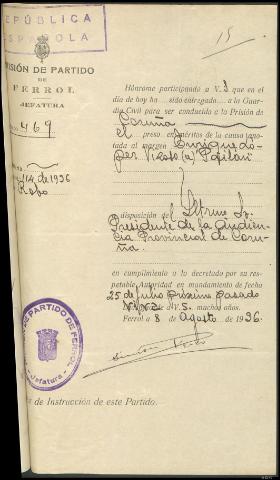 REPÚBLICA
ESPAÑOLA
15
PRISIÓN DE PARTIDO
DE
FERROL
JEFATURA
469
Hónrome participando a V. S que en el
día de hoy ha sido entregado a la Guar-
dia Civil para ser conducido a la Prisión de
Coruña
el preso en méritos de la causa ano-
tada al margen Enrique Lo-
pez (a)
114 de 1936
Robo
a disposición del Iltmo Sr.
Presidente de la Audien-
cia Provincial de Coru-
ña.
en cumplimiento a lo decretado por su res-
petable Autoridad en mandamiento de fecha
25 de Julio próximo pasado
V. S. muchos años.
Ferrol a 8 de Agosto de 1936.
DE PARTIDO DE FERROL
Jefatura
de Instrucción de este Partido.